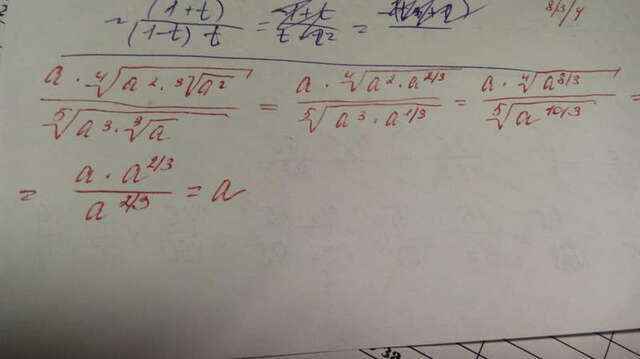 ~ (1+t)/((1-t) t) = =
8/3/4
(a · ⁴√(a² · ³√a²))/(⁵√(a³ · ³√a)) = (a · ⁴√(a² · a^(2/3)))/(⁵√(a³ · a^(1/3))) = (a · ⁴√(a^(8/3)))/(⁵√(a^(10/3))) =
= (a · a^(2/3))/(a^(2/3)) = a
3a